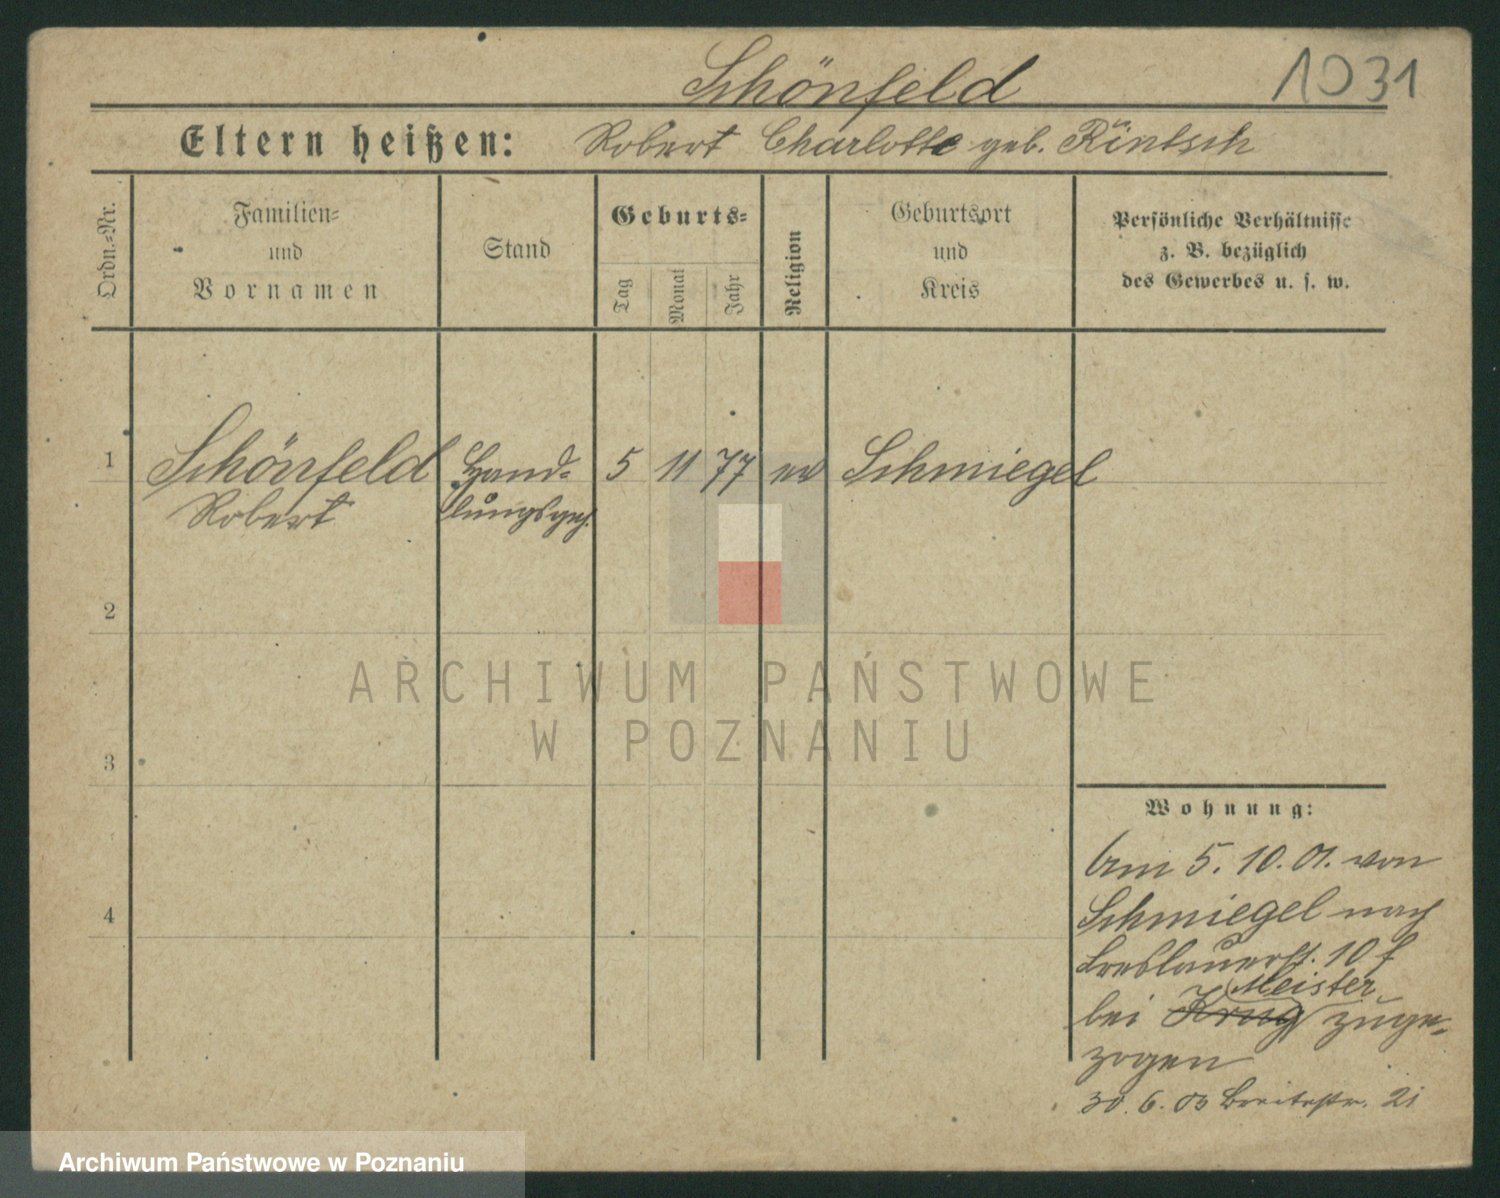 Schönfeld
1031
Eltern heißen: Robert Charlotte geb. Rintsch
Ordn.-Nr.
Familien-
und
Vornamen
Stand
Geburts-
Tag
Monat
Jahr
Religion
Geburtsort
und
Kreis
Persönliche Verhältnisse
z. B. bezüglich
des Gewerbes u. s. w.
1 Schönfeld Hand- 5 11 77 ev Schmiegel
Robert lungsgeh.
2
3
4
Wohnung:
Am 5. 10. 01. von
Schmiegel nach
Breslauerst. 10 f
Meister
bei Krug zuge-
zogen
30. 6. 03 Breitestr. 21
ARCHIWUM PAŃSTWOWE
W POZNANIU
Archiwum Państwowe w Poznaniu